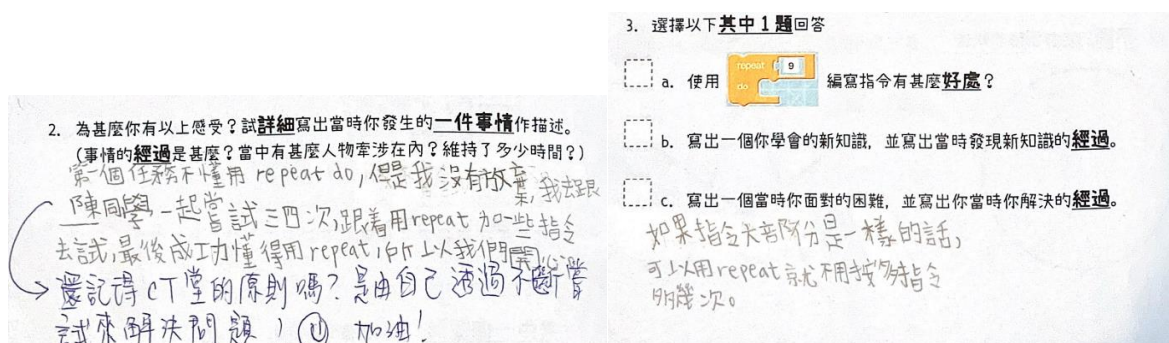 2. 為甚麼你有以上感受？試詳細寫出當時你發生的一件事情作描述。
(事情的經過是甚麼？當中有甚麼人物牽涉在內？維持了多少時間？)
第一個任務不懂用 repeat do，但是我沒有放棄，我去跟
陳同學一起嘗試三四次，跟着用repeat 加一些指令
去試，最後成功懂得用repeat，所以我們開心
還記得 CT堂的原則嗎？是由自己透過不斷嘗
試來解決問題，加油！
3. 選擇以下其中 1 題回答
a. 使用 repeat 9 do 編寫指令有甚麼好處？
b. 寫出一個你學會的新知識，並寫出當時發現新知識的經過。
c. 寫出一個當時你面對的困難，並寫出你當時你解決的經過。
如果指令大部份是一樣的話，
可以用repeat就不用按多指令
多幾次。